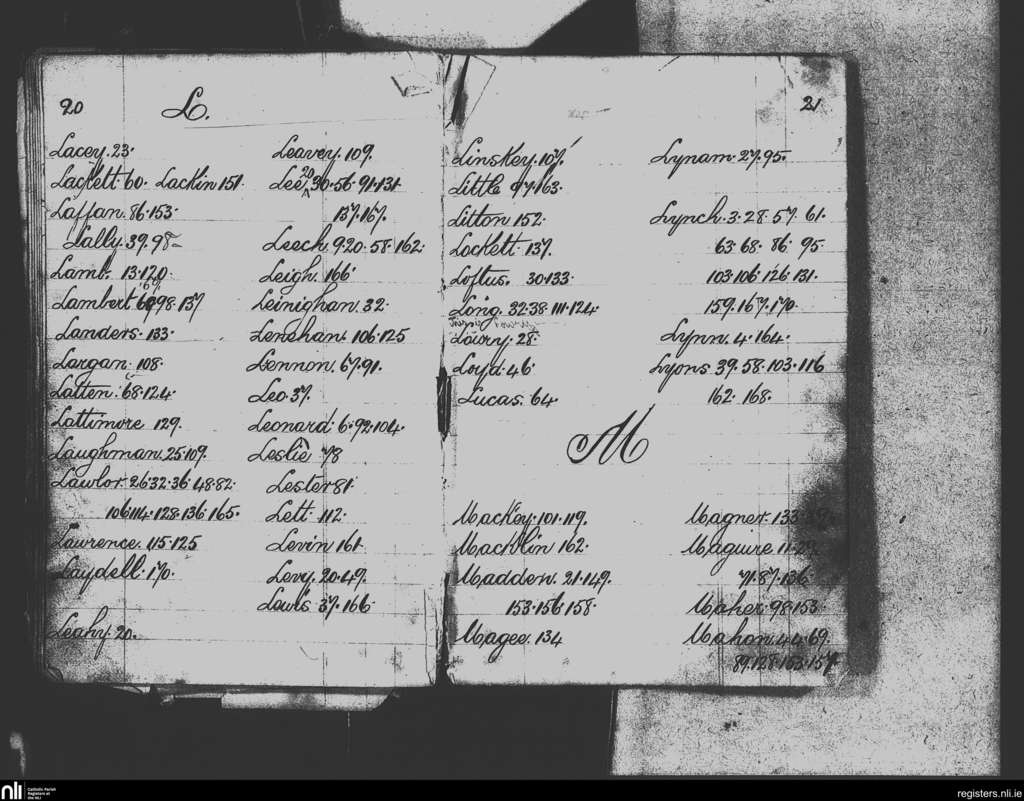 20
L.
Lacey. 23.
Lackett. 60. Lackin 151.
Laffan. 86.153.
Lally. 39.98
Lamb. 13.120.
Lambert 98.137
Landers. 133.
Largan. 108.
Latten. 68.124.
Lattimore 129.
Laughman. 25.109.
Lawlor. 26.32.36.48.82.
106.114.128.136.165.
Lawrence. 115.125
Laydell. 170.
Leahy. 20.
Leavey. 109.
Lee 20 30.56.91.131.
137.167.
Leech. 9.20.58.162.
Leigh. 166
Leinighan. 32.
Lenehan. 106.125
Lennon. 67.91.
Leo. 37.
Leonard. 6.92.104.
Leslie 78
Lester 81.
Lett. 112.
Levin 161.
Levy. 20.49.
Lewis. 37.166
21
Linskey. 107.
Little 97.163.
Litton 152.
Lockett. 137.
Loftus. 30.133.
Long. 32.38.111.124
Lowry. 28.
Loyd. 46
Lucas. 64.
Lynam. 27.95.
Lynch. 3.28.57.61.
63.68.86.95.
103.106.126.131.
159.167.170.
Lynn. 4.164.
Lyons 39.58.103.116
162.168.
M
Mackey. 101.119.
Macklin 162.
Madden. 21.149.
153.156.158.
Magee. 134
Magner. 133
Maguire 11.29.
71.87.136
Maher. 98.153.
Mahon. 44.69.
89.128.153.157
nli
Catholic Parish
Registers at
the NLI
registers.nli.ie